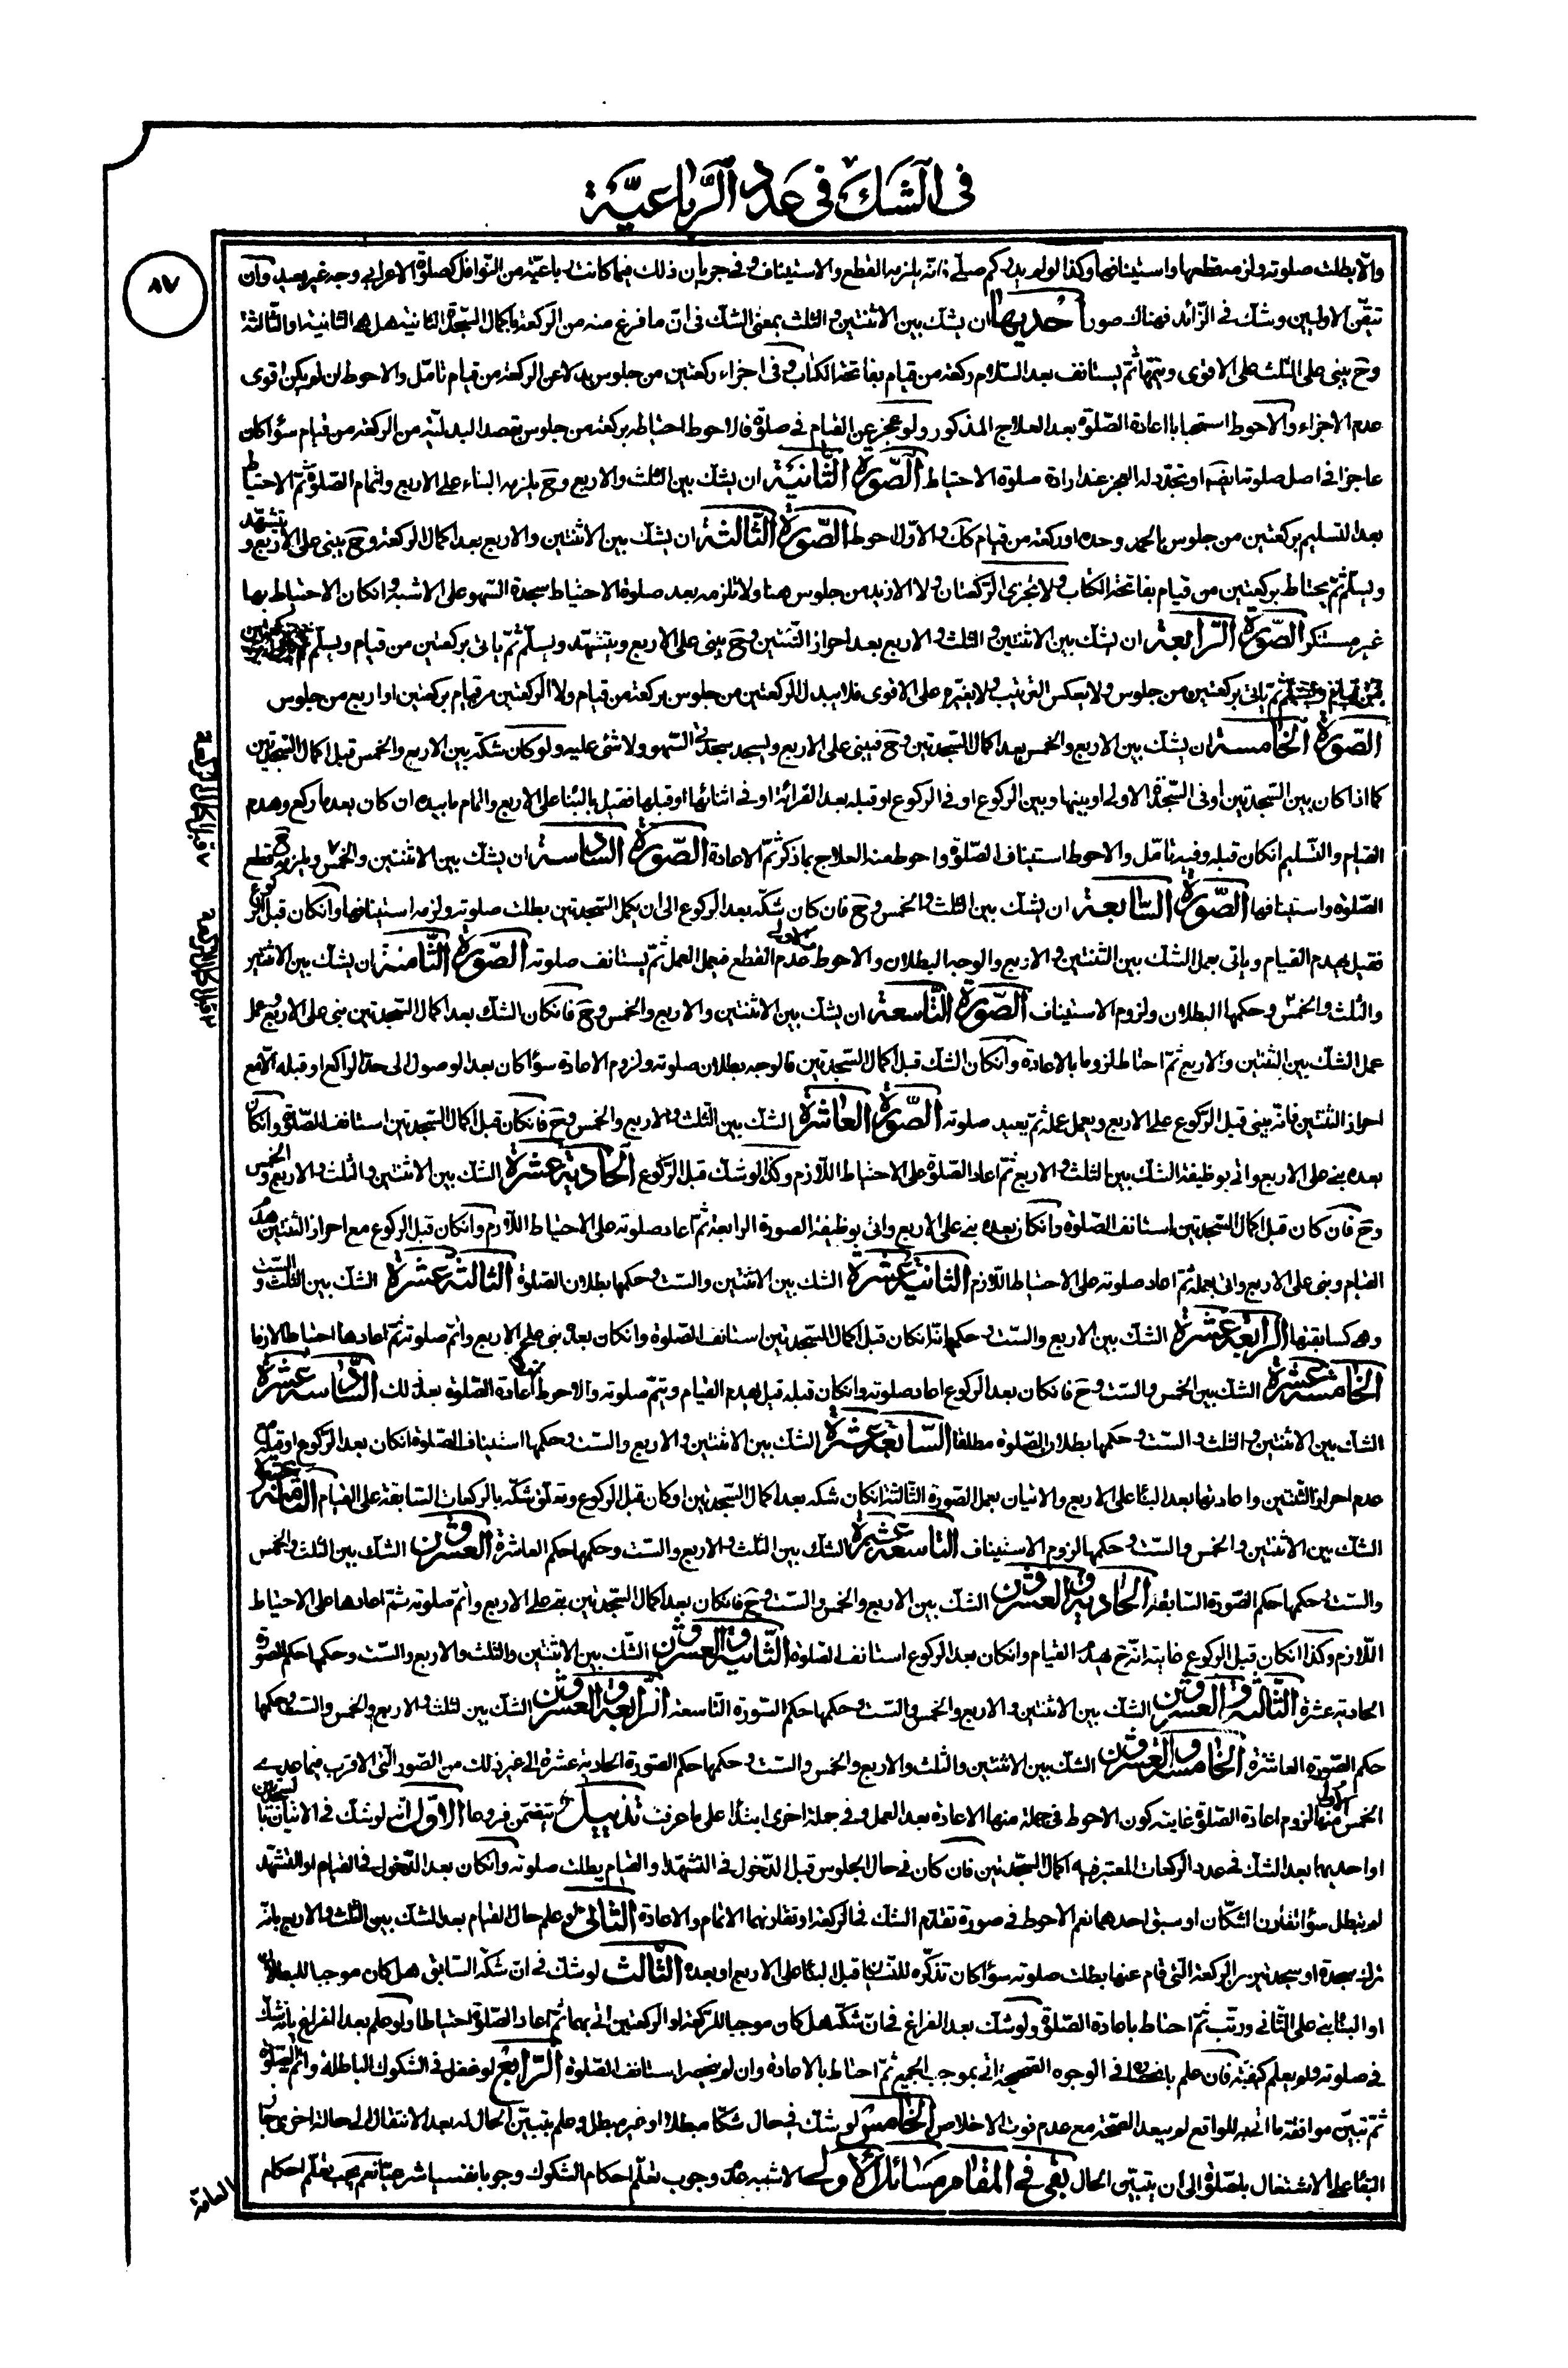 فى الشك فى عدد الرباعية
٨٧
والّا بطلت صلوته ولزمه قطعها واستينافها وكذا لو لم يدر كم صلّى فانّه يلزمه القطع والاستيناف وفى جريان ذلك فيما كانت رباعيّة من النّوافل كصلوة الاعرابى وجه غير بعيد وان
تيقّن الاوليين وشك فى الزّائد فهناك صور احديها ان يشك بين الاثنتين والثلث بمعنى الشك فى ان ما فرغ منه من الركعة باكمال السّجدة الثانية هل هى الثانية او الثّالثة
وح يبنى على الثلث على الاقوى ويتمّها ثمّ يستانف بعد السّلام ركعة من قيام بفاتحة الكتاب وفى اجزاء ركعتين من جلوس بدلا عن الركعة من قيام تامّل والاحوط ان لم يكن اقوى
عدم الاجزاء والاحوط استحبابا اعادة الصّلوة بعد العلاج المذكور ولو عجز عن القيام فى صلوته فالاحوط احتياطه بركعة من جلوس بقصد البدليّة من الركعة من قيام سواء كان
عاجزا فى اصل صلوته ايضه او تجدّد له العجز عند ارادة صلوة الاحتياط الصّورة الثّانية ان يشك بين الثلث والاربع وح يلزمه البناء على الاربع واتمام الصّلوة ثمّ الاحتياط
بعد التسليم بركعتين من جلوس بالحمد وحده او ركعة من قيام كك والاوّل احوط الصّورة الثّالثة ان يشك بين الاثنتين والاربع بعد اكمال الركعة وح يبنى على الاربع ويتشهّد
ويسلّم ثمّ يحتاط بركعتين من قيام بفاتحة الكتاب ولا تجزى الرّكعتان ولا الازيد من جلوس هنا ولا تلزمه بعد صلوة الاحتياط سجدة السّهو على الاشبه وان كان الاحتياط بها
غير مستنكر الصّورة الرّابعة ان يشك بين الاثنتين والثلث والاربع بعد احراز الثّنتين وح يبنى على الاربع ويتشهّد ويسلّم ثمّ ياتى بركعتين من قيام ويسلّم
ثمّ ياتى بركعتين من جلوس ولا يعكس الترتيب ولا يغيّره على الاقوى فلا يبدل الركعتين من جلوس بركعة من قيام ولا الركعتين من قيام بركعتين او اربع من جلوس
الصّورة الخامسة ان يشك بين الاربع والخمس بعد اكمال السّجدتين وح فيبنى على الاربع ويسجد سجدتى السّهو ولا شئ عليه ولو كان شكّه بين الاربع والخمس قبل اكمال السّجدتين
كما اذا كان بين السّجدتين او فى السّجدة الاولى او بينها وبين الركوع او فى الركوع او قبله بعد القرائة او فى اثنائها او قبلها فقيل بالبناء على الاربع واتمام ما بيده ان كان بعد ما ركع وهدم
القيام والتّسليم ان كان قبله وفيه تامّل والاحوط استيناف الصّلوة واحوط منه العلاج بما ذكر ثمّ الاعادة الصّورة السّادسة ان يشك بين الاثنتين والخمس ويلزمه ح قطع
الصّلوة واستينافها الصّورة السّابعة ان يشك بين الثلث والخمس وح فان كان شكّه بعد الركوع الى ان يكمل السّجدتين بطلت صلوته ولزمه استينافها وان كان قبل الركوع
فقيل يهدم القيام وياتى بعمل الشك بين الثنتين والاربع والوجه البطلان والاحوط عدم القطع فيعمل العمل ثمّ يستانف صلوته الصّورة الثّامنة ان يشك بين الاثنتين
والثلث والخمس وحكمها البطلان ولزوم الاستيناف الصّورة التّاسعة ان يشك بين الاثنتين والاربع والخمس وح فان كان الشك بعد اكمال السّجدتين بنى على الاربع وعمل
عمل الشك بين الثنتين والاربع ثمّ احتاط لزوما بالاعادة وان كان الشك قبل اكمال السّجدتين فالوجه بطلان صلوته ولزوم الاعادة سواء كان بعد الوصول الى حدّ الراكع او قبله الّا مع
احراز الثنتين فانّه يبنى قبل الركوع على الاربع ويعمل عمله ثمّ يعيد صلوته الصّورة العاشرة الشك بين الثلث والاربع والخمس وح فان كان قبل اكمال السّجدتين استانف الصّلوة وان كان
بعده بنى على الاربع واتى بوظيفة الشك بين الثلث والاربع ثمّ اعاد الصّلوة على الاحتياط اللّازم وكذا لو شك قبل الرّكوع الحادية عشرة الشك بين الاثنتين والثلث والاربع والخمس
وح فان كان قبل اكمال السّجدتين استانف الصّلوة وان كان بعده بنى على الاربع واتى بوظيفة الصورة الرابعة ثمّ اعاد صلوته على الاحتياط اللّازم وان كان قبل الركوع مع احراز الثنتين هدم
القيام وبنى على الاربع واتى بعمله ثمّ اعاد صلوته على الاحتياط اللّازم الثانية عشرة الشك بين الاثنتين والست وحكمها بطلان الصّلوة الثالثة عشرة الشك بين الثلث والست
وهى كسابقتها الرابعة عشرة الشك بين الاربع والست وحكمها انّه ان كان قبل اكمال السّجدتين استانف الصّلوة وان كان بعده بنى على الاربع واتمّ صلوته ثمّ اعادها احتياطا لازما
الخامسة عشرة الشك بين الخمس والست وح فان كان بعد الركوع اعاد صلوته وان كان قبله قيل يهدم القيام ويتمّ صلوته والاحوط اعادة الصّلوة بعد ذلك السّادسة عشرة
الشك بين الاثنتين والثلث والست وحكمها بطلان الصّلوة مطلقا السّابعة عشرة الشك بين الاثنتين والاربع والست وحكمها استيناف الصّلوة ان كان بعد الرّكوع او قبله مع
عدم احراز الثّنتين واعادتها بعد البناء على الاربع والاتيان بعمل الصّورة الثالثة ان كان شكه بعد اكمال السّجدتين او كان قبل الركوع وتعلّق شكّه بالركعات السّابقة على القيام الثامنة عشرة
الشك بين الاثنتين والخمس والست وحكمها لزوم الاستيناف التاسعة عشرة الشك بين الثلث والاربع والست وحكمها حكم العاشرة العشرون الشك بين الثلث والخمس
والست وحكمها حكم الصّورة السّابقة الحادية والعشرون الشك بين الاربع والخمس والست وح فان كان بعد اكمال السّجدتين بنى على الاربع واتمّ صلوته ثمّ اعادها على الاحتياط
اللّازم وكذا ان كان قبل الركوع غايته انّه ح يهدم القيام وان كان بعد الركوع استانف الصّلوة الثّانية والعشرون الشك بين الاثنتين والثلث والاربع والست وحكمها حكم الصورة
الحادية عشرة الثّالثة والعشرون الشك بين الاثنتين والاربع والخمس والست وحكمها حكم الصّورة التّاسعة الرّابعة والعشرون الشك بين الثلث والاربع والخمس والست وحكمها
حكم الصّورة العاشرة الخامسة والعشرون الشك بين الاثنتين والثلث والاربع والخمس والست وحكمها حكم الصّورة الحادية عشرة الى غير ذلك من الصّور الّتى الاقرب فيما عدى
الخمس الاولى منها لزوم اعادة الصّلوة غايته كون الاحوط فى جملة منها الاعادة بعد العمل وفى جملة اخرى ابتداء على ما عرفت تذييل يتضمّن فروعا الاوّل انّه لو شك فى الاتيان بالسجدتين
او احديهما بعد الشك فى عدد الركعات المعتبر فيه اكمال السّجدتين فان كان فى حال الجلوس قبل الدّخول فى التشهّد او القيام بطلت صلوته وان كان بعد الدّخول فى القيام او التشهّد
لم تبطل سواء تقارن الشكّان او سبق احدهما نعم الاحوط فى صورة تقدّم الشك فى الركعة او تقارنهما الاتمام والاعادة الثّانى لو علم حال القيام بعد الشك بين الثلث والاربع بانّه
ترك سجدة او سجدتين من الركعة الّتى قام عنها بطلت صلوته سواء كان تذكّره للنّسيان قبل البناء على الاربع او بعده الثّالث لو شك فى انّ شكّه السّابق هل كان موجبا للبطلان
او البناء بنى على الثّانى ورتّب ثمّ احتاط باعادة الصّلوة ولو شك بعد الفراغ فى انّ شكّه هل كان موجبا للرّكعة او الركعتين اتى بهما ثمّ اعاد الصّلوة احتياطا ولو علم بعد الفراغ بانّه شك
فى صلوته ولم يعلم كيفيّته فان علم بانحصاره فى الوجوه الصّحيحة اتى بموجب الجميع ثمّ احتاط بالاعادة وان لم ينحصر استانف الصّلوة الرّابع لو غفل فى الشكوك الباطلة واتمّ الصّلوة
ثمّ تبيّن موافقة ما اتى به للواقع لم يبعد الصّحّة مع عدم فوت الاخلاص الخامس لو شك فى حال شكّا مبطلا او غير مبطل وعلم بتبيّن الحال له بعد الانتقال الى حالة اخرى جاز
البقاء على الاشتغال بالصّلوة الى ان يتبيّن الحال بقى فى المقام مسائل الاولى الاشبه عدم وجوب تعلّم احكام الشكوك وجوبا نفسيا شرعيّا نعم يجب تعلّم احكام
العامّة